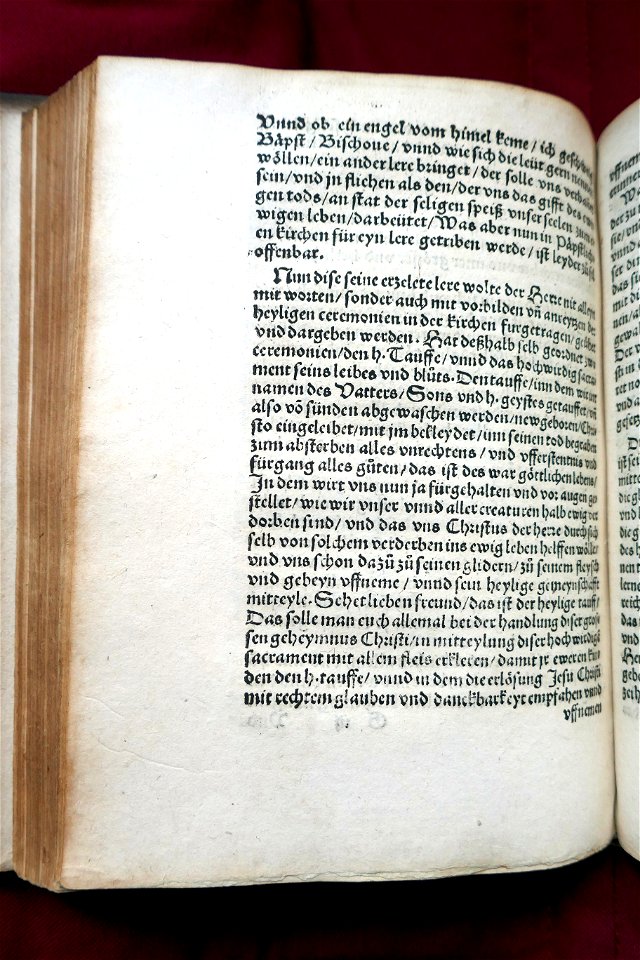 Vnnd ob ein engel vom himel keme / ich geschwig
Bäpst / Bischoue / vnnd wie sich die leüt gern nennen
wöllen / ein ander lere bringet / der solle vns verbannt
sein / vnd jn fliehen als den / der vns das gifft des ewi
gen tods / an stat der seligen speiß vnser seelen zum e
wigen leben / darbeütet / Was aber nun in Päpstlich
en kirchen für eyn lere getriben werde / ist leyder zů vil
offenbar.
Nun dise seine erzelete lere wolte der Herre nit alleyn
mit worten / sonder auch mit vorbilden vñ anreytzen der
heyligen ceremonien in der kirchen furgetragen / geübet
vnd dargeben werden. Hat deßhalb selb geordnet zwo
ceremonien / den h. Tauffe / vnnd das hochwirdig sacra
ment seins leibes vnd blůts. Den tauffe / inn dem wir im
namen des Vatters / Sons vnd h. geystes getauffet / vñ
also vō sünden abgewaschen werden / new geboren / Chri
sto eingeleibet / mit jm bekleydet / inn seinen tod begraben
zum absterben alles vnrechtens / vnd vfferstentnus vnd
fürgang alles gůten / das ist des war göttlichen lebens /
In dem wirt vns nun ja fürgehalten vnd vor augen ge
stellet / wie wir vnser vnnd aller creaturen halb ewig ver
dorben sind / vnd das vns Christus der herre durch sich
selb von solchem verderben ins ewig leben helffen wölle /
vnd vns schon dazů zů seinen glidern / zů seinem fleysch
vnd gebeyn vffneme / vnnd sein heylige gemeynschafft
mitteyle. Sehet lieben freund / das ist der heylige tauff /
Das solle man euch allemal bei der handlung diser gros
sen geheymnus Christi / in mitteylung diser hochwirdigen
sacrament mit allem fleis erkleren / damit jr eweren kin
den den h. tauffe / vnnd in dem die erlösung Jesu Christi
mit rechtem glauben vnd danckbarkeyt empfahen vnnd
vffnemen